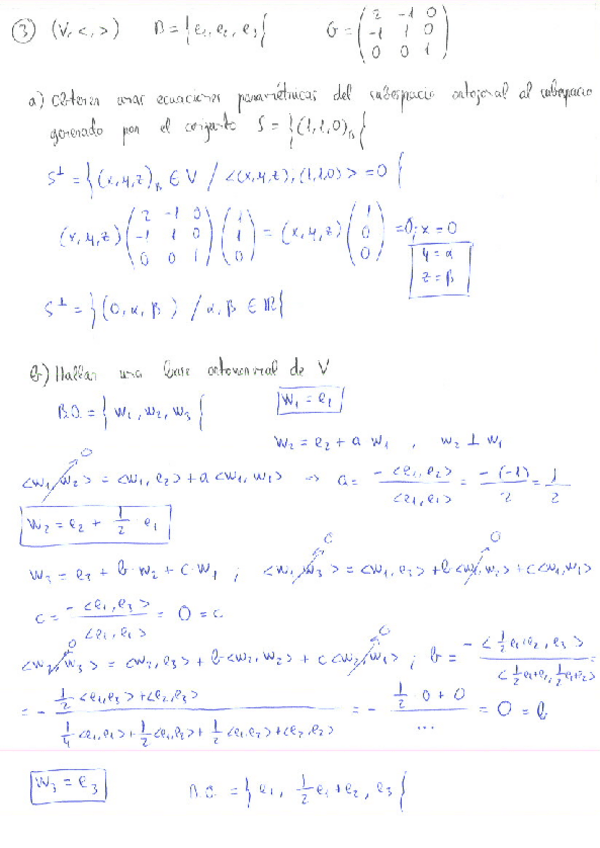 ③ (V, < , >) B = {e₁, e₂, e₃} G = (2 -1 0; -1 1 0; 0 0 1)
a) Obtener unas ecuaciones paramétricas del subespacio ortogonal al subespacio
generado por el conjunto S = {(1,1,0)_B}
S⊥ = {(x,y,z)_B ∈ V / <(x,y,z), (1,1,0)> = 0}
(x,y,z) (2 -1 0; -1 1 0; 0 0 1) (1; 1; 0) = (x,y,z) (1; 0; 0) = 0; x = 0
y = α
z = β
S⊥ = {(0, α, β) / α, β ∈ ℝ}
b) Hallar una base ortonormal de V
B.O. = {w₁, w₂, w₃} w₁ = e₁
w₂ = e₂ + a w₁ , w₂ ⊥ w₁
<w₁, w₂> 0 = <w₁, e₂> + a <w₁, w₁> → a = -<e₁, e₂> / <e₁, e₁> = -(-1) / 2 = 1/2
w₂ = e₂ + 1/2 e₁
w₃ = e₃ + b·w₂ + c·w₁ ; <w₁, w₃> 0 = <w₁, e₃> + b <w₁, w₂> 0 + c <w₁, w₁>
c = -<e₁, e₃> / <e₁, e₁> = 0 = c
<w₂, w₃> 0 = <w₂, e₃> + b <w₂, w₂> + c <w₂, w₁> 0 ; b = -<1/2 e₁+e₂, e₃> / <1/2 e₁+e₂, 1/2 e₁+e₂> =
= - (1/2 <e₁, e₃> + <e₂, e₃>) / (1/4 <e₁, e₁> + 1/2 <e₁, e₂> + 1/2 <e₁, e₂> + <e₂, e₂>) = - (1/2 · 0 + 0) / ... = 0 = b
w₃ = e₃ B.O. = {e₁, 1/2 e₁+e₂, e₃}